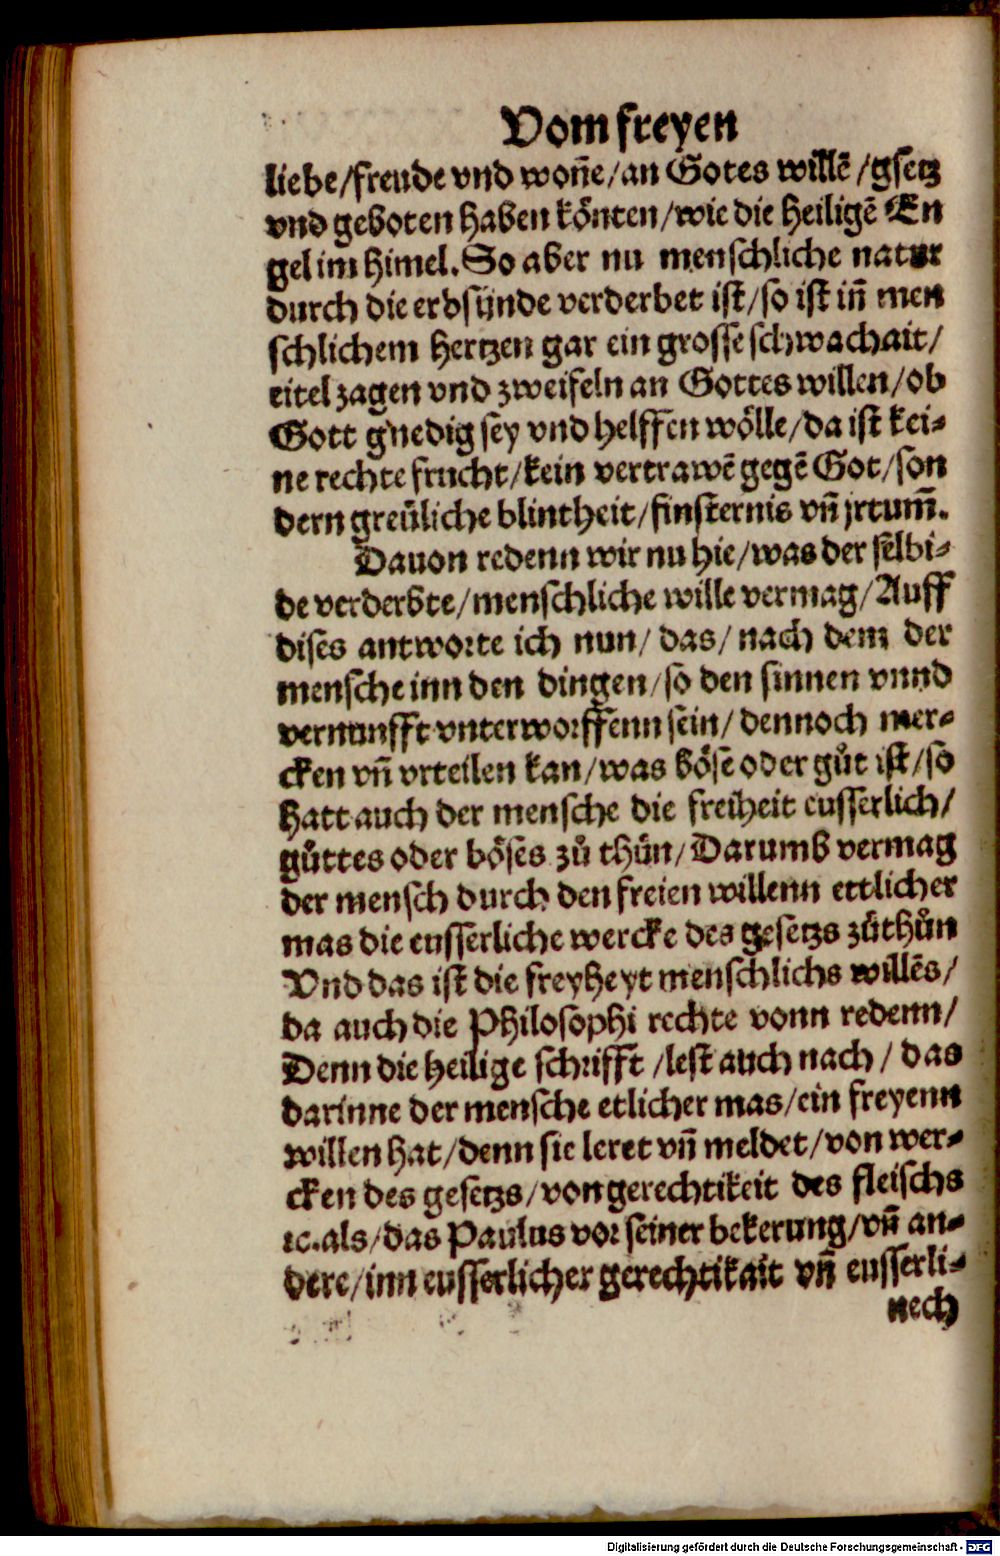 Vom freyen
liebe/freude vnd won̄e/an Gotes willē/gsetz
vnd geboten haben könten/wie die heiligē En
gel im himel. So aber nu menschliche natur
durch die erbsünde verderbet ist/so ist in̄ men
schlichem hertzen gar ein grosse schwachait/
eitel zagen vnd zweifeln an Gottes willen/ob
Gott gnedig sey vnd helffen wölle/da ist kei-
ne rechte frucht/kein vertrawē gegē Got/son
dern greüliche blintheit/finsternis vn̄ jrtum̄.
Dauon redenn wir nu hie/was der selbi-
de verderbte/menschliche wille vermag/Auff
dises antworte ich nun/das/nach dem der
mensche inn den dingen/so den sinnen vnnd
vernunfft vnterworffenn sein/dennoch mer-
cken vn̄ vrteilen kan/was böse oder gůt ist/so
hatt auch der mensche die freiheit eusserlich/
gůttes oder böses zů thůn/Darumb vermag
der mensch durch den freien willenn ettlicher
mas die eusserliche wercke des gesetzs zůthůn
Vnd das ist die freyheyt menschlichs willēs/
da auch die Philosophi rechte vonn redenn/
Denn die heilige schrifft/lest auch nach/das
darinne der mensche etlicher mas/ein freyenn
willen hat/denn sie leret vn̄ meldet/von wer-
cken des gesetzs/von gerechtikeit des fleischs
ꝛc. als/das Paulus vor seiner bekerung/vn̄ an-
dere/inn eusserlicher gerechtikait vn̄ eusserli-
nech
Digitalisierung gefördert durch die Deutsche Forschungsgemeinschaft - DFG